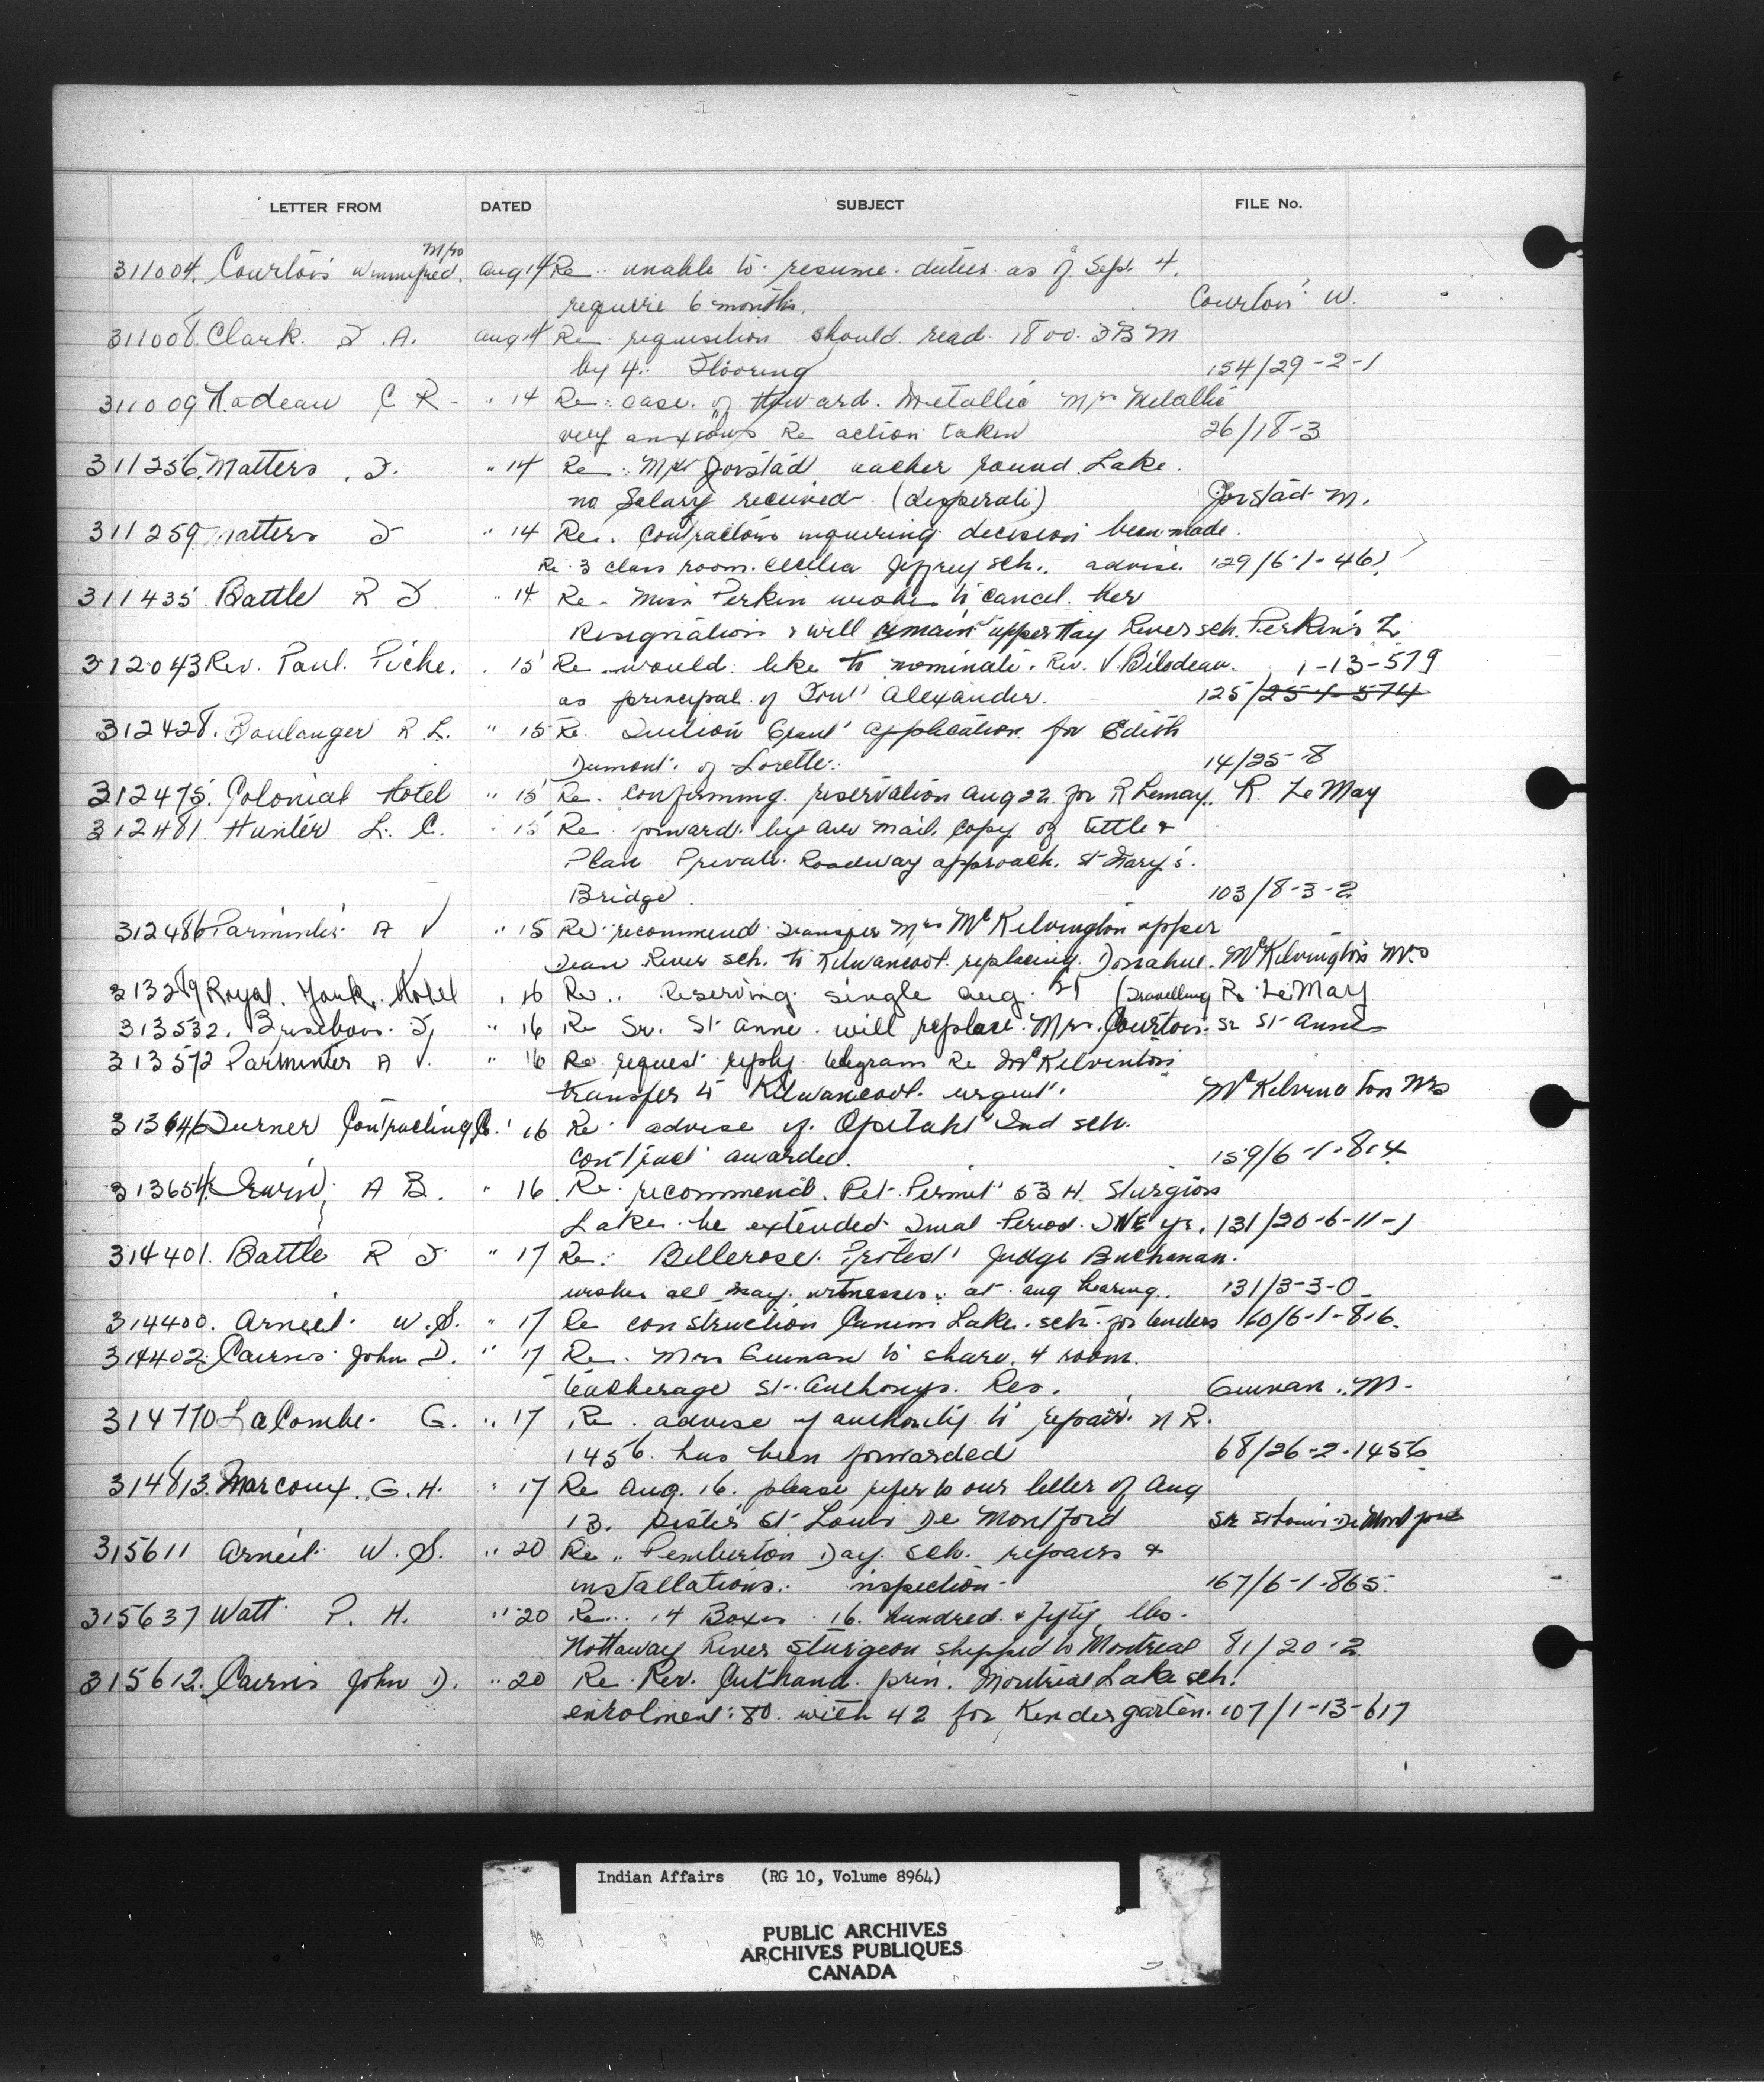 LETTER FROM DATED SUBJECT FILE No.
Mrs
311004. Courtois Winnifred. Aug 14 Re unable to resume duties as of Sept 4.
require 6 months. Courtois W.
311008. Clark. F. A. Aug 14 Re requisition should read 1800. FBM
by 4" Flooring 154/29-2-1
311009 Nadeau C R - " 14 Re: case of Howard. Metallic Mrs Metallic
very anxious Re action taken 26/18-3
311256. Matters. F. " 14 Re Mrs Jorstad teacher round Lake.
no Salary received (desperate) Jorstad M.
311259 Matters F " 14 Re. Contractors inquiring decision been made.
Re 3 class room. Cecilia Jeffrey sch. advise. 129/6-1-461
311435 Battle R F " 14 Re. Miss Perkin wishes to cancel her
Resignation & will remain upper Hay River sch. Perkins L
312043 Rev. Paul. Piche. . 15 Re would like to nominate. Rev. V Bilodeau. 1-13-579
as principal of Fort Alexander. 125/25-1-574
312428. Boulanger R. L. " 15 Re. Tuition Grant application for Edith
Dumont. of Lorette. 14/25-8
312475. Colonial Hotel " 15 Re. confirming reservation Aug 22 for R Lemay. R. LeMay
312481. Hunter L. C. " 15 Re forward by air mail. copy of tittle &
Plan Private Roadway approach. St Mary's.
Bridge 103/8-3-2
312486 Parminter A V " 15 Re recommend Transfer Mrs McKelvington upper
Dean River sch. to Kitwancool. replacing Donahue. McKelvington Mrs
313289 Royal York Hotel " 16 Re.. Reserving single Aug. 21 (Travelling R. LeMay
313532. Brisebois F, " 16 Re Sr. St Anne. will replace Mrs. Courtois. Sr St Anne
313572 Parminter A V. " 16 Re request reply telegram Re McKelvinton
transfer to Kitwancool. urgent. McKelvington Mrs
313646 Turner Contracting Co. " 16 Re advise if Opitahl Ind sch.
contract awarded. 159/6-1-814
313654. Irwin, A B. " 16 Re recommend. Pet. Permit 53 H Sturgion
Lake. be extended. Trial Period. ONE yr. 131/20-6-11-1
314401. Battle R F " 17 Re: Bellerose. Protest Judge Buchanan.
wishes all may. witnesses. at Aug hearing. 131/3-3-0
314400. Arneil. W. S. " 17 Re construction Canim Lake. sch. for tenders 160/6-1-816.
314402. Cairns John D. " 17 Re. Mrs Guinan to share. 4 room.
teacherage St. Anthonys. Res. Guinan. M.
314770 LaCombe. G. " 17 Re. advise if authority to repair. N R.
1456. has been forwarded 68/26-2-1456
314813. Marcoux. G. H. " 17 Re Aug. 16. please refer to our letter of Aug
13. Sister St Louis De Montford Sr St Louis De Montford
315611 Arneil. W. S. " 20 Re. Pemberton Day. sch. repairs &
installations. inspection - 167/6-1-865.
315637 Watt P. H. " 20 Re... 14 Boxes 16. hundred & fifty lbs.
Nottaway River Sturgeon shipped to Montreal 81/20-2
315612. Cairns John D. " 20 Re Rev. Cuthand. prin. Montreal Lake sch.
enrolment: 80. with 42 for Kendergarten. 107/1-13-617
Indian Affairs (RG 10, Volume 8964)
PUBLIC ARCHIVES
ARCHIVES PUBLIQUES
CANADA